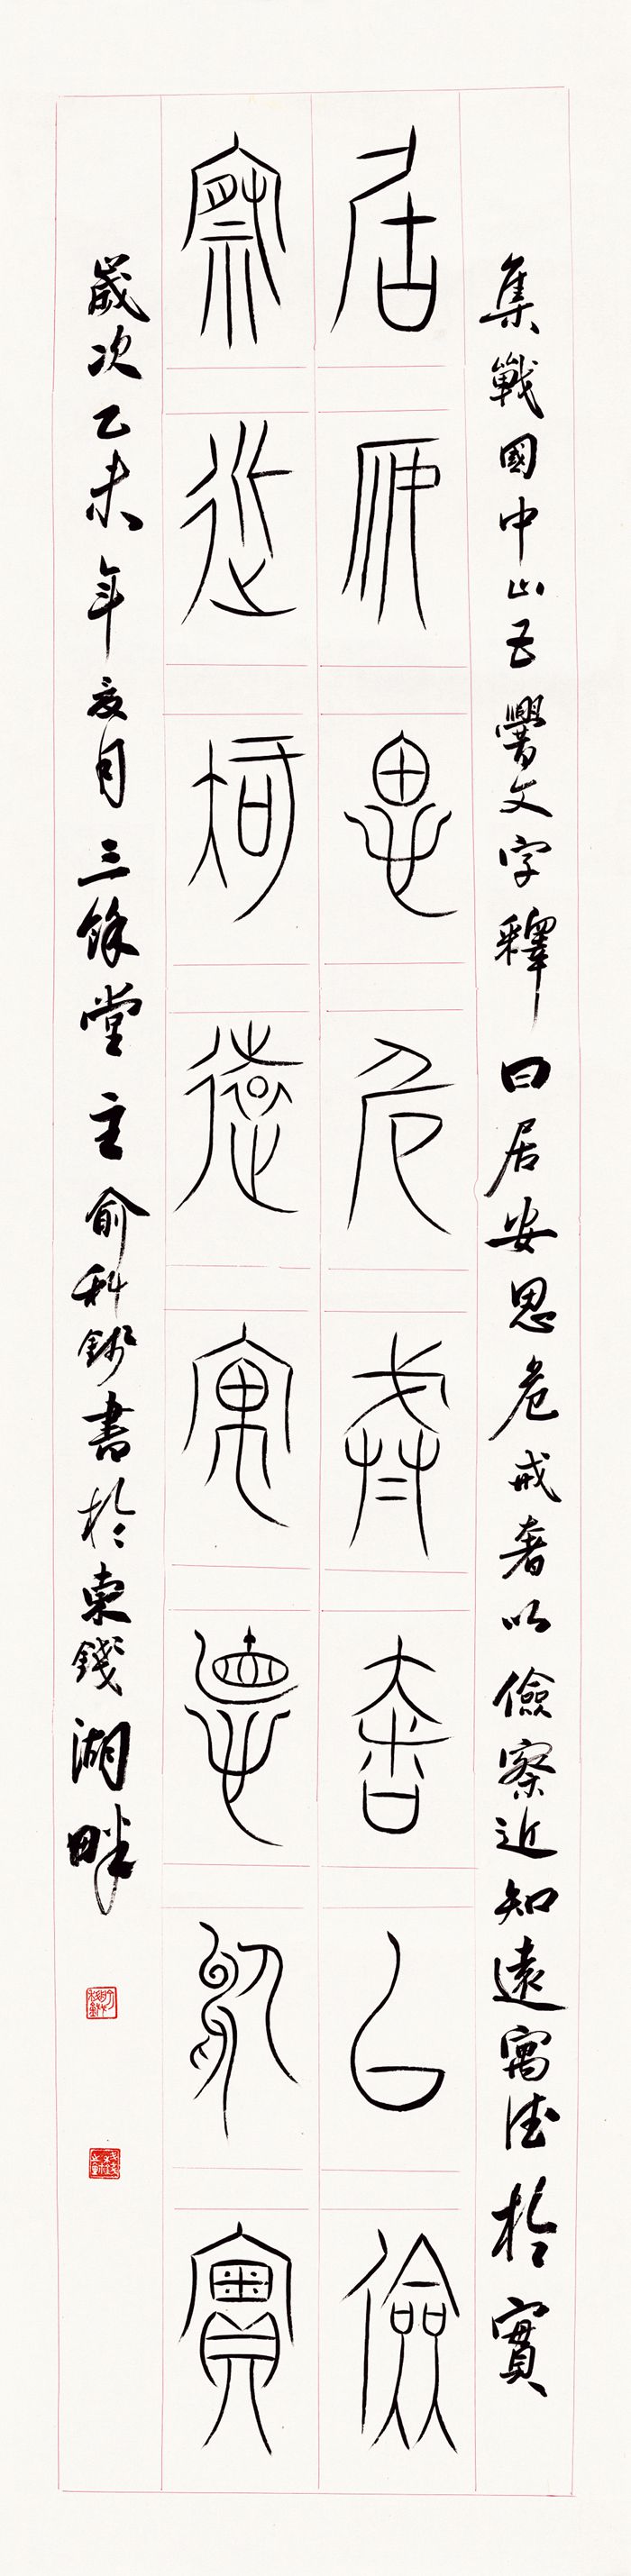 集戰國中山王文字釋曰居安思危戒奢以儉察近知遠寓德於實
居安思危戒奢以儉
察近知遠寓德於實
歲次乙未年夏月三餘堂主俞科書於東錢湖畔